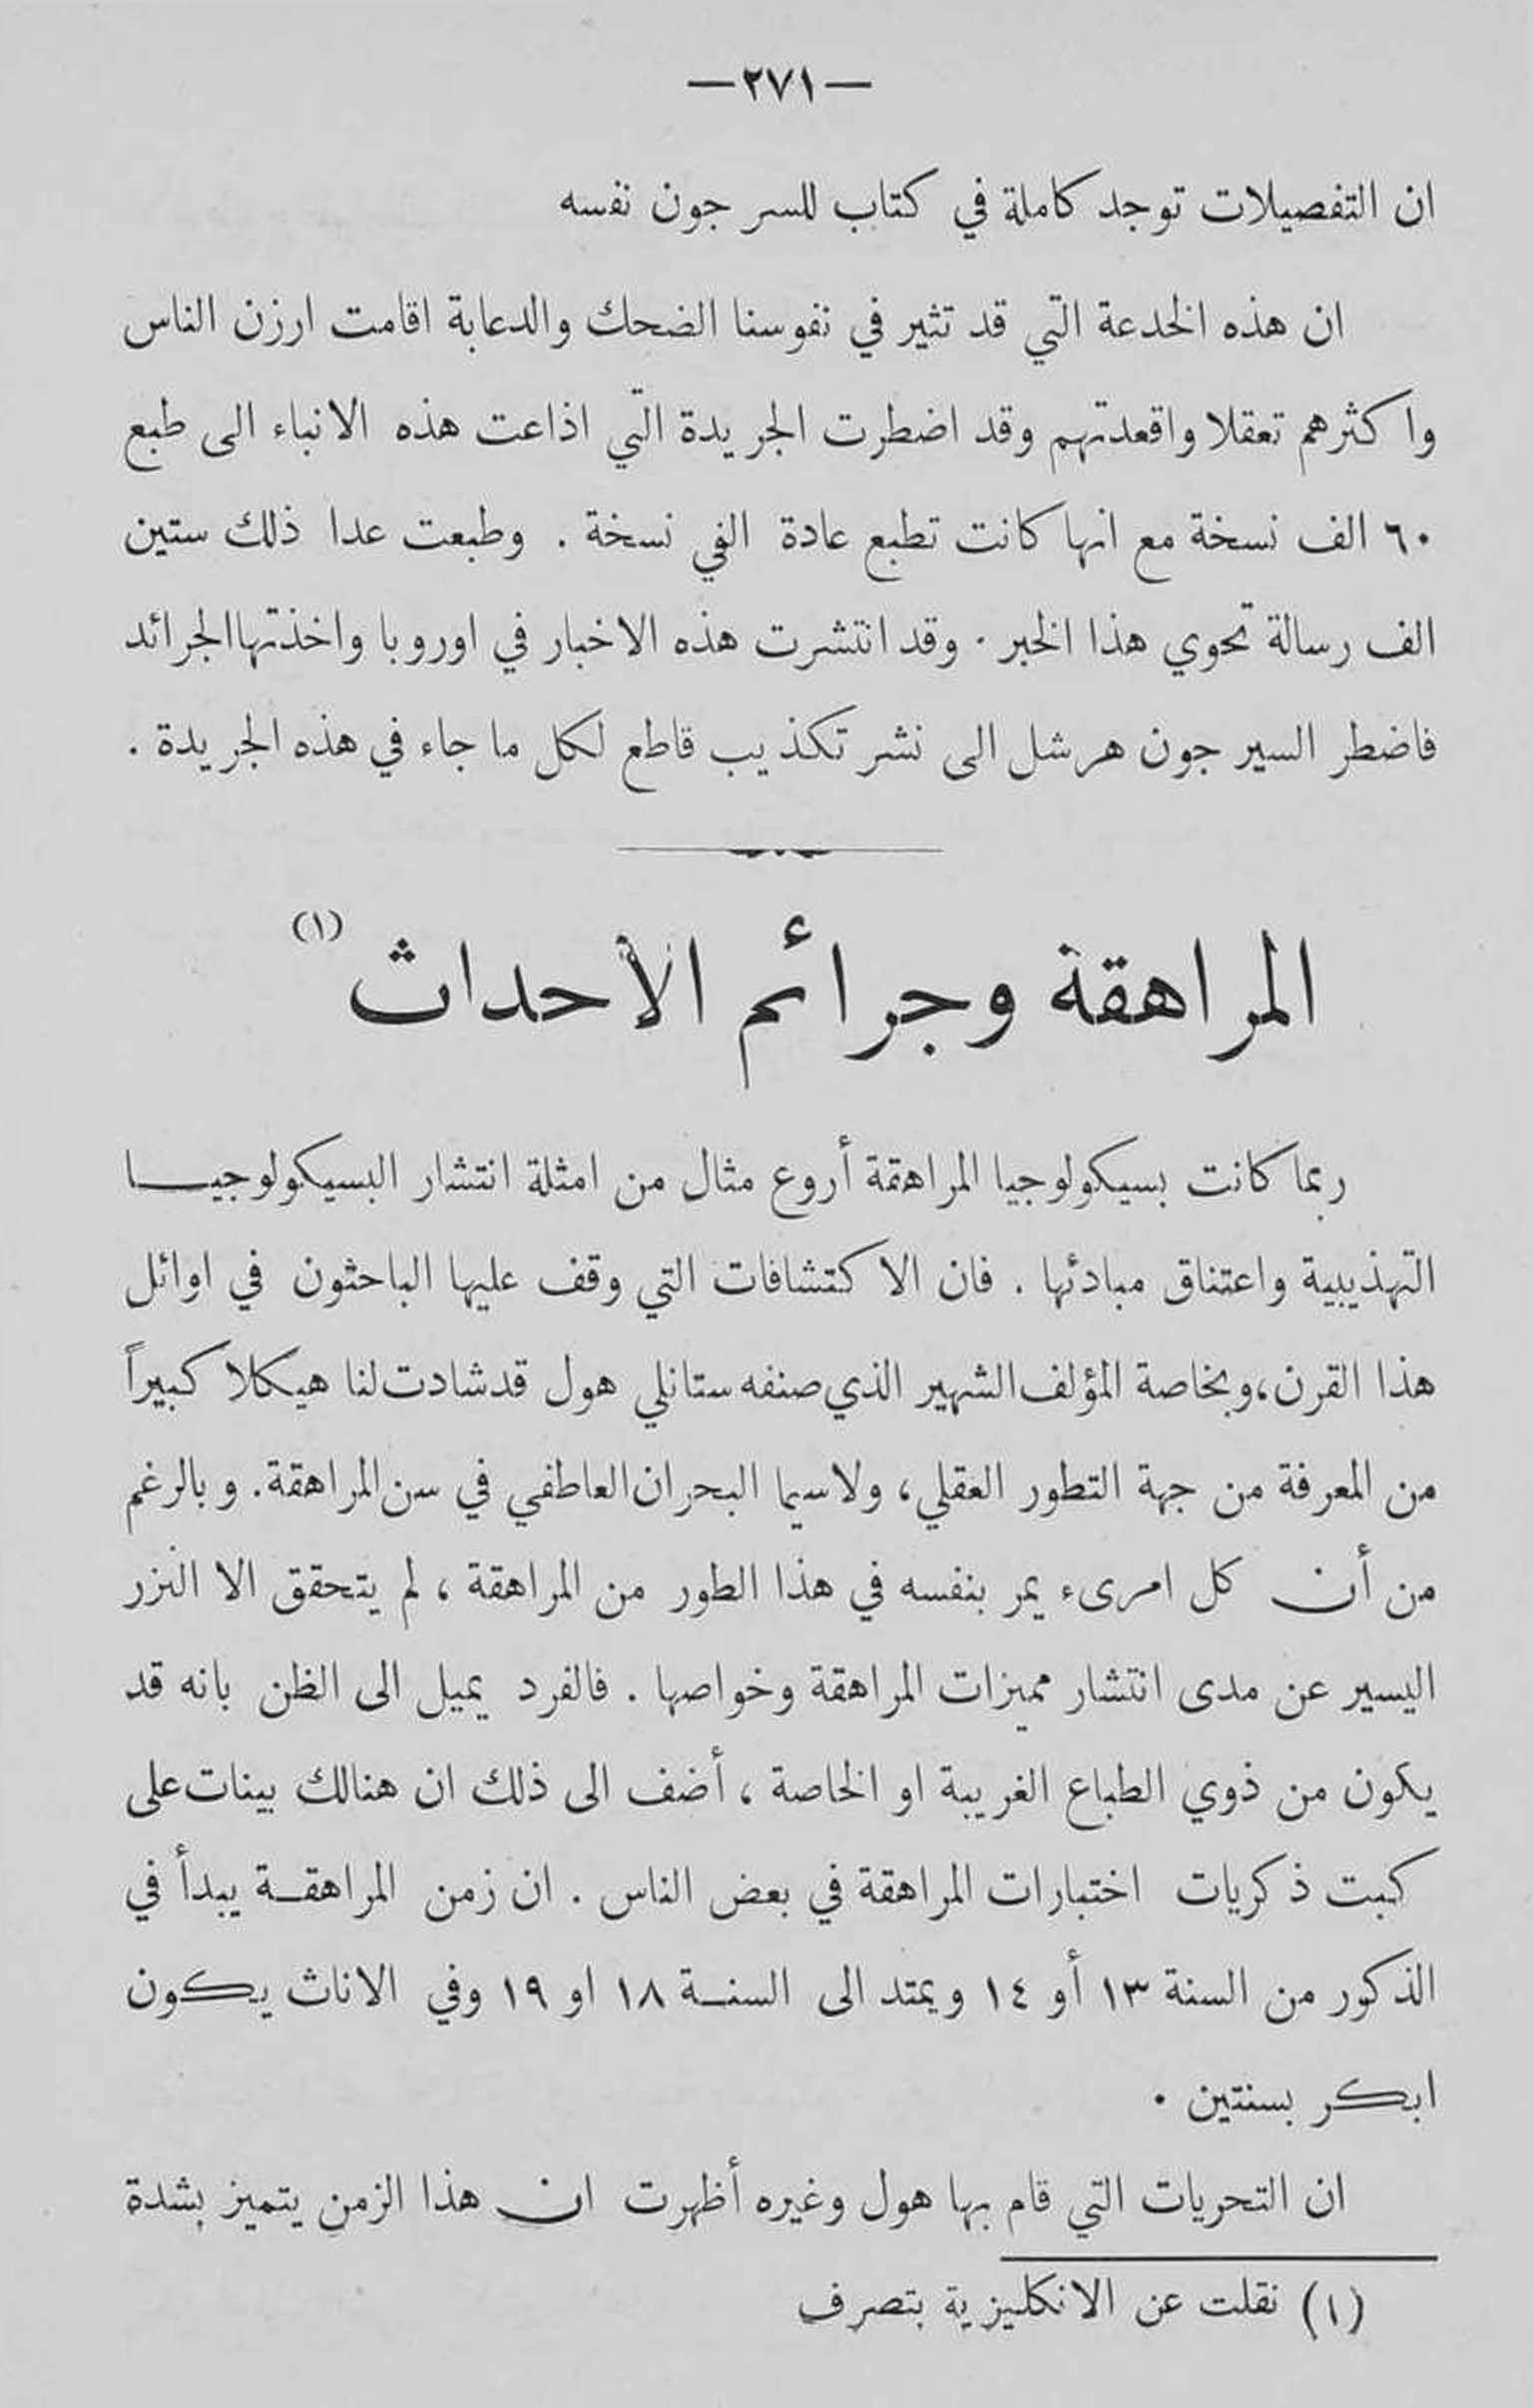 —٢٧١—
ان التفصيلات توجد كاملة في كتاب للسر جون نفسه
ان هذه الخدعة التي قد تثير في نفوسنا الضحك والدعابة اقامت ارزن الناس
واكثرهم تعقلا واقعدتهم وقد اضطرت الجريدة التي اذاعت هذه الانباء الى طبع
٦٠ الف نسخة مع انها كانت تطبع عادة الفي نسخة . وطبعت عدا ذلك ستين
الف رسالة تحوي هذا الخبر . وقد انتشرت هذه الاخبار في اوروبا واخذتها الجرائد
فاضطر السير جون هرشل الى نشر تكذيب قاطع لكل ما جاء في هذه الجريدة .
المراهقة وجرائم الأحداث (١)
ربما كانت بسيكولوجيا المراهقة أروع مثال من امثلة انتشار البسيكولوجيـــا
التهذيبية واعتناق مبادئها . فان الاكتشافات التي وقف عليها الباحثون في اوائل
هذا القرن، وبخاصة المؤلف الشهير الذي صنفه ستانلي هول قد شادت لنا هيكلا كبيراً
من المعرفة من جهة التطور العقلي، ولاسيما البحران العاطفي في سن المراهقة. وبالرغم
من أن كل امرىء يمر بنفسه في هذا الطور من المراهقة ، لم يتحقق الا النزر
اليسير عن مدى انتشار مميزات المراهقة وخواصها . فالفرد يميل الى الظن بانه قد
يكون من ذوي الطباع الغريبة او الخاصة ، أضف الى ذلك ان هنالك بينات على
كبت ذكريات اختبارات المراهقة في بعض الناس . ان زمن المراهقـة يبدأ في
الذكور من السنة ١٣ أو ١٤ ويمتد الى السنـة ١٨ او ١٩ وفي الاناث يكون
ابكر بسنتين .
ان التحريات التي قام بها هول وغيره أظهرت ان هذا الزمن يتميز بشدة
(١) نقلت عن الانكليزية بتصرف